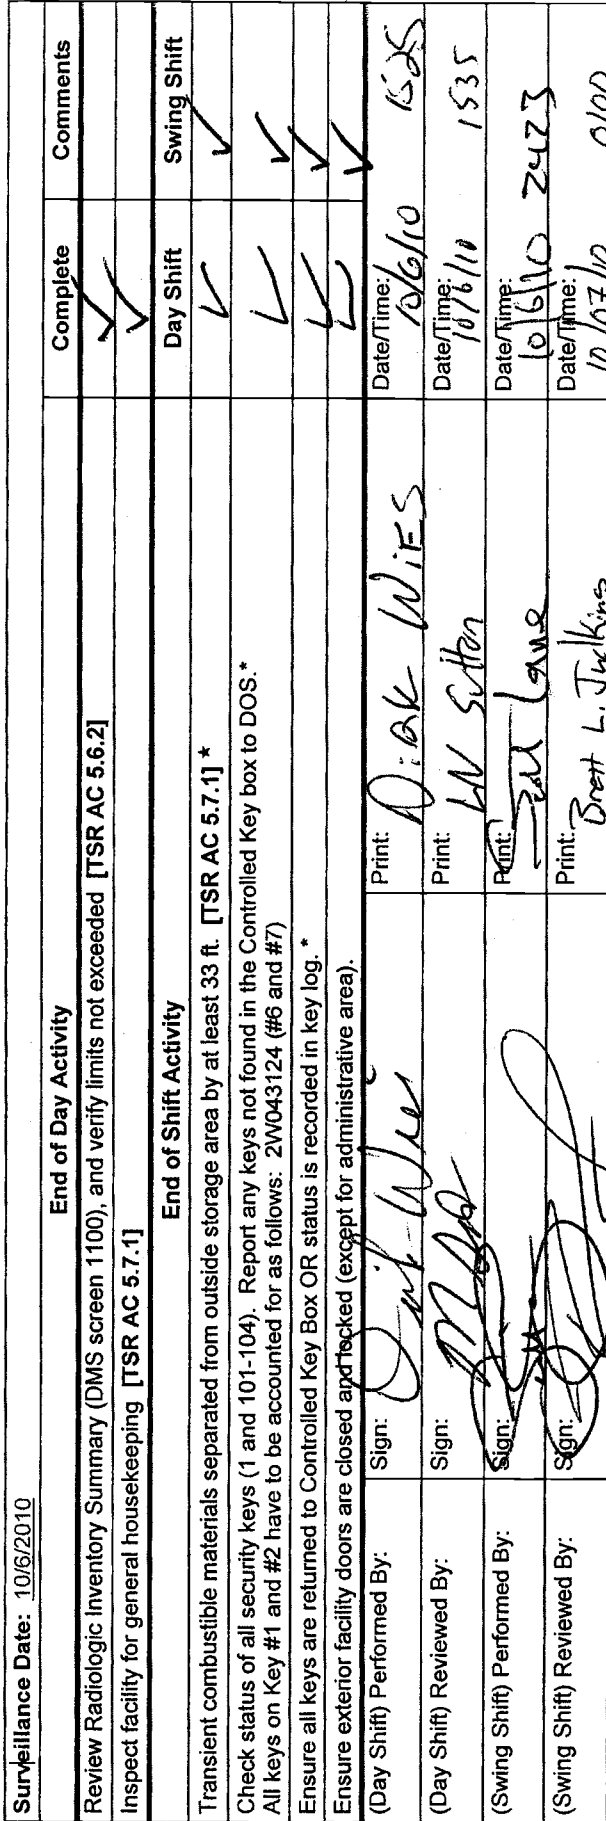 Surveillance Date: 10/6/2010
End of Day Activity Complete Comments
Review Radiologic Inventory Summary (DMS screen 1100), and verify limits not exceeded [TSR AC 5.6.2]
Inspect facility for general housekeeping [TSR AC 5.7.1]
End of Shift Activity Day Shift Swing Shift
Transient combustible materials separated from outside storage area by at least 33 ft. [TSR AC 5.7.1] *
Check status of all security keys (1 and 101-104). Report any keys not found in the Controlled Key box to DOS.*
All keys on Key #1 and #2 have to be accounted for as follows: 2W043124 (#6 and #7)
Ensure all keys are returned to Controlled Key Box OR status is recorded in key log. *
Ensure exterior facility doors are closed and locked (except for administrative area).
(Day Shift) Performed By: Sign: Print: Dirk Wies Date/Time: 10/6/10 1525
(Day Shift) Reviewed By: Sign: Print: Sutton Date/Time: 10/6/10 1535
(Swing Shift) Performed By: Sign: Print: Lane Date/Time: 10/6/10
(Swing Shift) Reviewed By: Sign: Print: Brett L. Judkins Date/Time: 10/07/10 0100